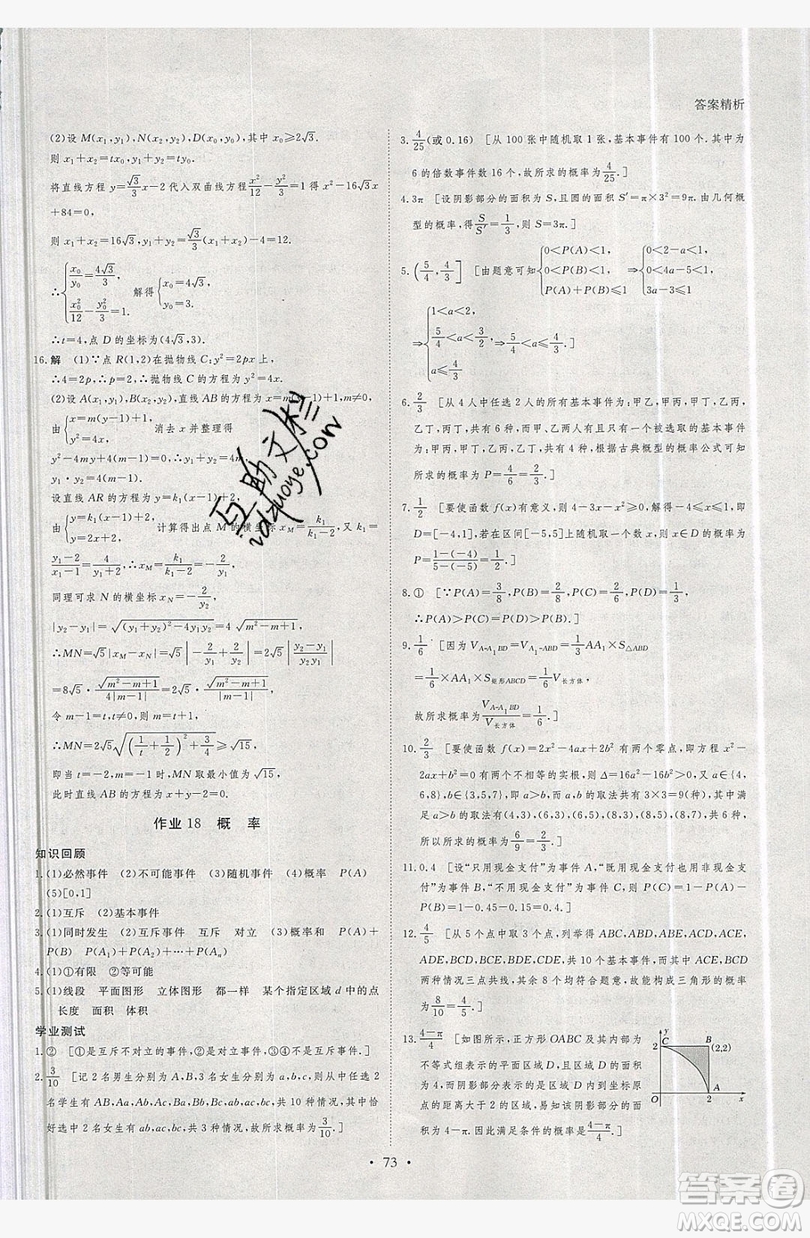 答案精析
(2)设 M(x₁,y₁),N(x₂,y₂),D(x₀,y₀),其中 x₀≥2√3.
则 x₁+x₂=tx₀,y₁+y₂=ty₀.
将直线方程 y=(√3/3)x-2 代入双曲线方程 x²/12-y²/3=1 得 x²-16√3x
+84=0.
∴x₁+x₂=16√3,y₁+y₂=(√3/3)(x₁+x₂)-4=12.
∴{x₀/y₀=4√3/3, x₀²/12-y₀²/3=1. 解得{x₀=4√3, y₀=3.
∴t=4,点 D 的坐标为(4√3,3).
16.解 (1)∵点 R(1,2)在抛物线 C:y²=2px 上,
∴4=2p,p=2,∴抛物线方程为 y²=4x.
(2)设 A(x₁,y₁),B(x₂,y₂),直线 AB 的方程为 x=m(y-1)+1,m≠0,
由{x=m(y-1)+1, y²=4x, 消去 x 并整理得
y²-4my+4(m-1)=0,
∴y₁+y₂=4m,y₁y₂=4(m-1).
设直线 AR 的方程为 y=k₁(x-1)+2,
由{y=k₁(x-1)+2, y=2x+2, 计算得出点 M 的横坐标 x_M=k₁/(k₁-2),又 k₁
=(y₁-2)/(x₁-1)=4/(y₁+2),∴x_M=k₁/(k₁-2)=-2/y₁.
同理可求 N 的横坐标 x_N=-2/y₂.
|y₂-y₁|=√((y₁+y₂)²-4y₁y₂)=4√(m²-m+1),
∴MN=√5|x_M-x_N|=√5|2/y₁-2/y₂|=2√5|(y₂-y₁)/(y₁y₂)|
=8√5·√(m²-m+1)/(4|m-1|)=2√5·√(m²-m+1)/|m-1|,
令 m-1=t,t≠0,则 m=t+1,
∴MN=2√5√((1/t+1/2)²+3/4)≥√15,
当 t=-2,m=-1 时,MN 取最小值为√15,
此时直线 AB 的方程为 x+y-2=0.
作业18 概 率
知识回顾
1.(1)必然事件 (2)不可能事件 (3)随机事件 (4)概率 P(A)
(5)[0,1]
2.(1)互斥 (2)基本事件
3.(1)同时发生 (2)互斥事件 互斥 对立 (3)概率和 P(A)+
P(B) P(A₁)+P(A₂)+…+P(Aₙ)
4.(1)①有限 ②等可能
5.(1)线段 平面图形 立体图形 都一样 某个指定区域 d 中的点
长度 面积 体积
学业测试
1.② [①是互斥不对立的事件,②是对立事件,③④不是互斥事件.]
2.3/10 [记 2 名男生分别为 A,B,3 名女生分别为 a,b,c,从中任选 2
名学生有 AB,Aa,Ab,Ac,Ba,Bb,Bc,ab,ac,bc,共 10 种情况,其中恰
好选中 2 名女生有 ab,ac,bc,共 3 种情况,故所求概率为3/10.]
3.4/25(或 0.16) [从 100 张中随机取 1 张,基本事件有 100 个.其中为
6 的倍数事件数 16 个,故所求的概率为4/25.]
4.3π [设阴影部分的面积为 S,且圆的面积 S′=π×3²=9π.由几何概
型的概率,得S/S′=1/3,则 S=3π.]
5.(5/4,4/3] [由题意可知{0<P(A)<1, 0<P(B)<1, P(A)+P(B)≤1 ⇒{0<2-a<1, 0<4a-5<1, 3a-3≤1
⇒{1<a<2, 5/4<a<3/2, a≤4/3 ⇒5/4<a≤4/3.]
6.2/3 [从 4 人中任选 2 人的所有基本事件为:甲乙,甲丙,甲丁,乙丙,
乙丁,丙丁,共有 6 种,其中甲、乙两人中有且只有一个被选取的基本事
件为:甲丙,甲丁,乙丙,乙丁,共有 4 种,根据古典概型的概率公式可知
所求概率为 P=4/6=2/3.]
7.1/2 [要使函数 f(x)有意义,则 4-3x-x²≥0,解得-4≤x≤1,
即 D=[-4,1],若在区间[-5,5]上随机取一个数 x,则 x∈D 的概率
P=(1-(-4))/(5-(-5))=1/2.]
8.① [∵P(A)=1/6+1/6=1/3,P(B)=4/6=2/3,P(C)=2/6=1/3,
∴P(B)>P(A)=P(C).]
9.1/6 [因为 V_{A-A₁BD}=V_{A₁-ABD}=1/3AA₁×S_{△ABD}
=1/6×AA₁×S_{矩形ABCD}=1/6V_{长方体},
故所求概率为V_{A-A₁BD}/V_{长方体}=1/6.]
10.2/3 [要使函数 f(x)=2x²-4ax+2b² 有两个零点,即方程 x²-
2ax+b²=0 要有两个不等的实根,则 Δ=16a²-16b²>0,又 a∈{4,
6,7},b∈{3,5,8},即 a>b,而 a,b 的取法共有 3×3=9(种),其中满足
a>b 的取法有(4,3),(6,3),(6,5),(7,3),(7,5),共 6 种,
所以所求的概率为6/9=2/3.]
11.0.4 [设“只用现金支付”为事件 A,“既用现金支付也用非现金支
付”为事件 B,“不用现金支付”为事件 C,则 P(C)=1-P(A)-
P(B)=1-0.45-0.15=0.4.]
12.4/5 [从 5 个点中取 3 个点,列举得 ABC,ABD,ABE,ACD,
ACE,ADE,BCD,BCE,BDE,CDE 共有 10 个基本事件,而其中
ACE,BCD 两种情况三点共线,其余 8 个符合题意,故能构成三角形的概率为
8/10=4/5.]
13.(4-π)/4 [如图所示,正方形 OABC 及其内部为
不等式组表示的平面区域 D,且区域 D 的面积
为 4,而阴影部分表示的是区域 D 内到坐标原点
的距离大于 2 的区域,易知该阴影部分的面积
为 4-π.因此满足条件的概率是(4-π)/4.]
y
2 C B (2,2)
A
O 2 x
• 73 •
互助文栏
idzuoye.com
答案卷
MXQE.COM